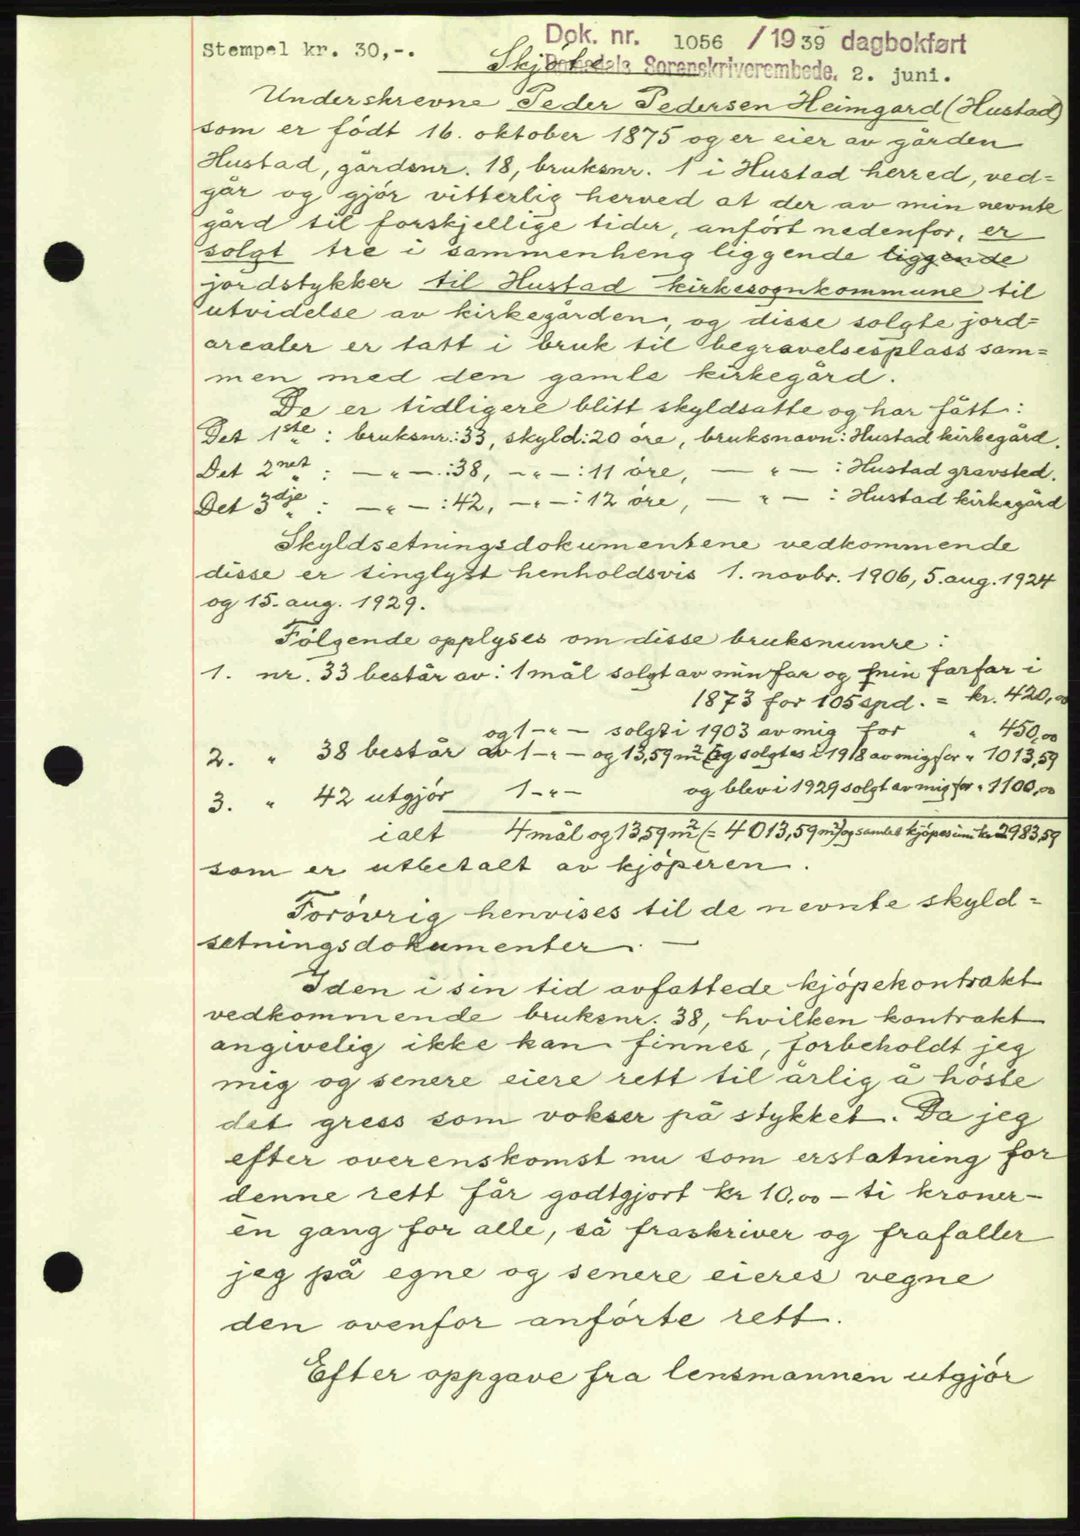 Stempel kr. 30,-.
Dok. nr. 1056 / 1939 dagbokført
Skjøte
Romsdals Sorenskriverembede. 2. juni.
Underskrevne Peder Pedersen Heimgard (Hustad)
som er født 16. oktober 1875 og er eier av gården
Hustad, gårdsnr. 18, bruksnr. 1 i Hustad herred, ved=
går og gjór vitterlig herved at der av min nevnte
gård til forskjellige tider, anfórt nedenfor, er
solgt tre i sammenheng liggende liggende
jordstykker til Hustad kirkesognkommune til
utvidelse av kirkegården, og disse solgte jord=
arealer er tatt i bruk til begravelsesplass sam=
men med den gamle kirkegård.
De er tidligere blitt skyldsatte og har fått:
Det 1ste : bruksnr.:33, skyld:20 óre, bruksnavn: Hustad kirkegård.
Det 2net : — " — :38, — " — :11 óre, — " — : Hustad gravsted.
Det 3dje : — " — :42, — " — : 12 óre, — " — : Hustad kirkegård
Skyldsetningsdokumentene vedkommende
disse er tinglyst henholdsvis 1. novbr. 1906, 5. aug. 1924
og 15. aug. 1929.
Fólgende opplyses om disse bruksnumre:
1. nr. 33 består av: 1 mål solgt av min far og min farfar i
1873 for 105 spd. = kr. 420,00
og 1 - " - solgt i 1903 av mig for " 450,00
2. " 38 består av 1 - " - og 13,59 m² og solgtes i 1918 av mig for " 1013,59
3. " 42 utgjór 1 - " - og blev i 1929 solgt av mig for " 1100,00
ialt 4 mål og 13,59 m² (= 4013,59 m²) og samlet kjópesum kr. 2983,59
som er utbetalt av kjóperen.
Foróvrig henvises til de nevnte skyld=
setningsdokumenter. —
I den i sin tid avfattede kjópekontrakt
vedkommende bruksnr. 38, hvilken kontrakt
angivelig ikke kan finnes, forbeholdt jeg
mig og senere eiere rett til årlig å hóste
det gress som vokser på stykket. Da jeg
efter overenskomst nu som erstatning for
denne rett får godtgjort kr 10,00 — ti kroner —
én gang for alle, så fraskriver og frafaller
jeg på egne og senere eieres vegne
den ovenfor anfórte rett.
Efter oppgave fra lensmannen utgjór